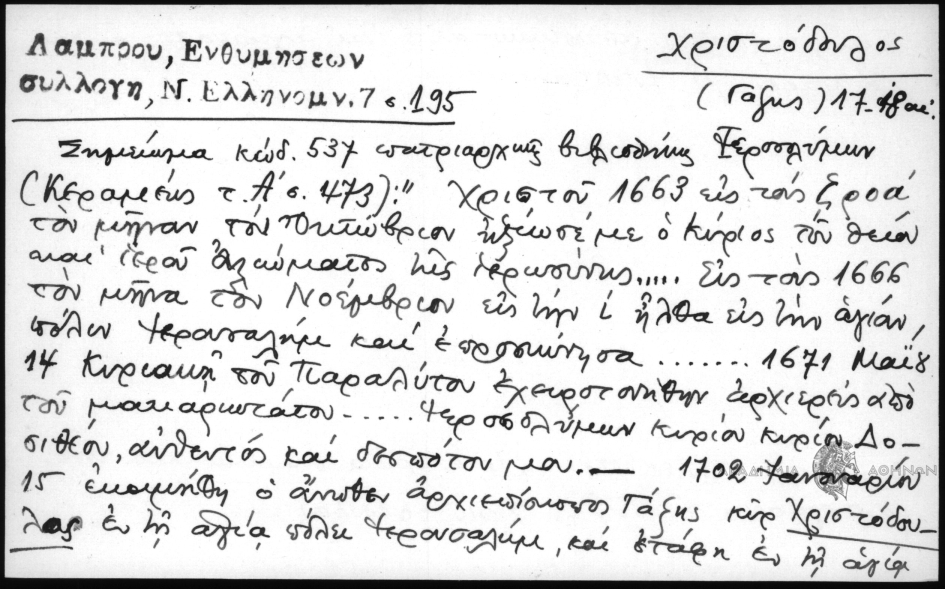 Λαμπρου, Ενθυμησεων
συλλογη, Ν. Ελληνομν. 7 σ. 195
Χριστόδουλος
(Γάζης) 17-18 αι.
Σημείωμα κώδ. 537 πατριαρχικῆς βιβλιοθήκης Ἱεροσολύμων
(Κεραμεύς τ. Α΄ σ. 473): " Χριστοῦ 1663 εἰς τοὺς
τὸν μῆναν τὸν Ὀκτώβριον ἠξίωσέ με ὁ Κύριος τοῦ θείου
καὶ ἱεροῦ ἀξιώματος τῆς ἱερωσύνης..... Εἰς τοὺς 1666
τὸν μῆνα τὸν Νοέμβριον εἰς τὴν ί ἦλθα εἰς τὴν ἁγίαν,
πόλιν Ἱερουσαλὴμ καὶ ἐπροσκύνησα ....... 1671 Μαΐῳ
14 Κυριακῇ τοῦ Παραλύτου ἐχειροτονήθην ἀρχιερεὺς ἀπὸ
τοῦ μακαριωτάτου ..... Ἱεροσολύμων κυρίου κυρίου Δο-
σιθέου, αὐθεντός καὶ δεσπότου μου. — 1702 Ἰανουαρίου
15 ἐκοιμήθη ὁ ἄνωθεν ἀρχιεπίσκοπος Γάζης κὺρ Χριστόδου-
λος ἐν τῇ ἁγίᾳ πόλει Ἱερουσαλήμ, καὶ ἐτάφη ἐν τῇ ἁγίᾳ
ΑΚΑΔΗΜΙΑ ΑΘΗΝΩΝ